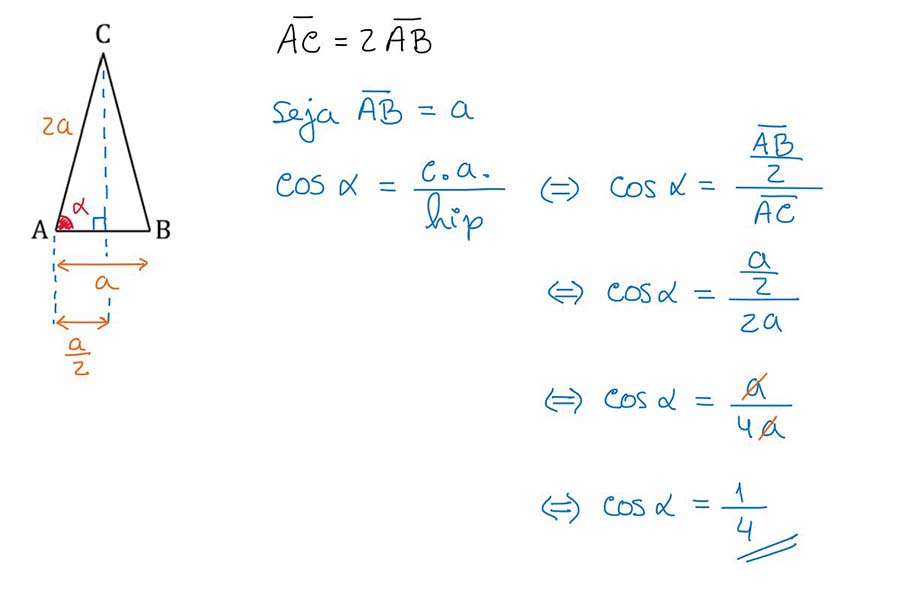 C
2a
α
A
B
a
a/2
A̅C̅ = 2 A̅B̅
Seja A̅B̅ = a
cos α = c.a./hip ⇔ cos α = (A̅B̅/2)/A̅C̅
⇔ cos α = (a/2)/2a
⇔ cos α = a/4a
⇔ cos α = 1/4